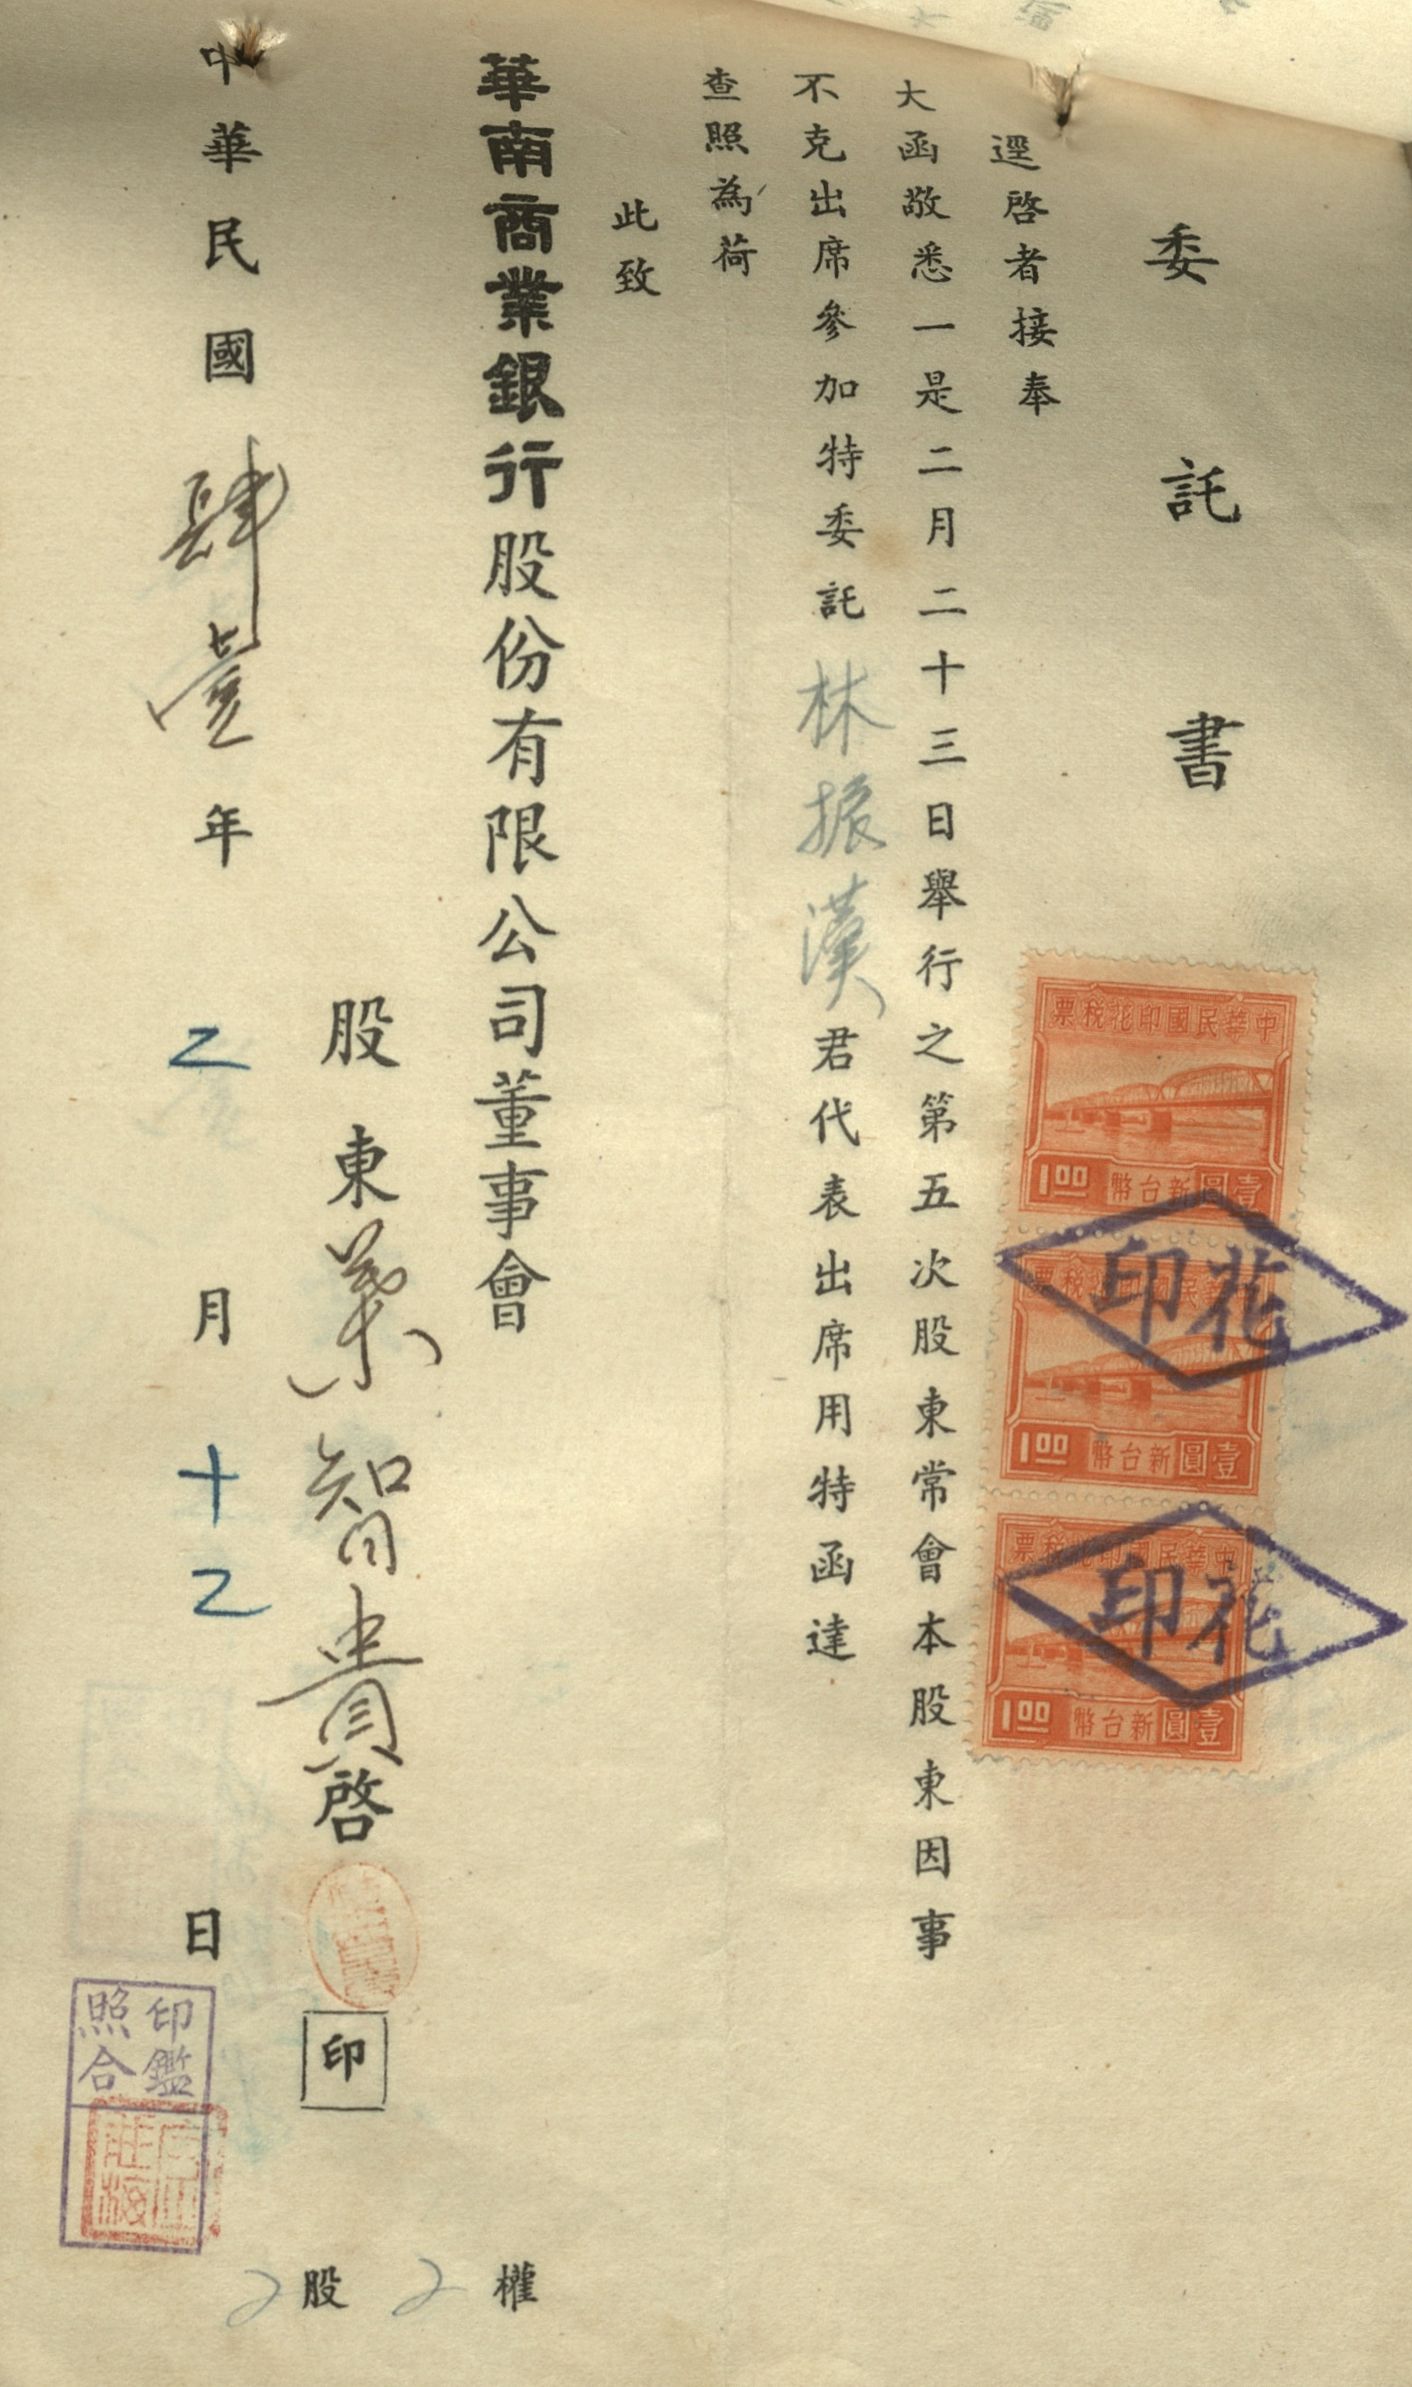 委託書
逕啓者接奉
大函敬悉一是二月二十三日舉行之第五次股東常會本股東因事
不克出席參加特委託林振漢君代表出席用特函達
查照為荷
此致
華南商業銀行股份有限公司董事會
股東葉智貴啓 印
中華民國肆壹年乙月十乙日
2股2權
中華民國印花稅票
壹圓新台幣 1.00
花印
壹圓新台幣 1.00
中華民國印花稅票
花印
壹圓新台幣 1.00
印鑑
照合